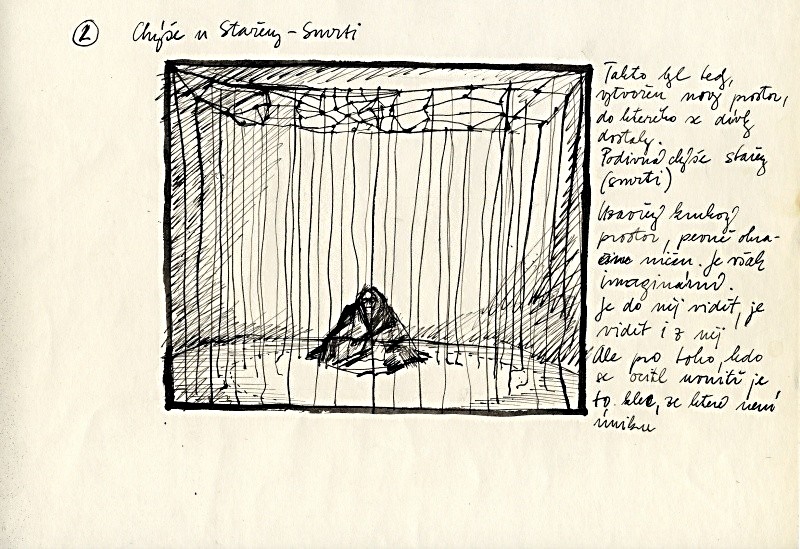 2 Chýše u Stařeny - Smrti
Takto byl tedy,
vytvořen nový prostor,
do kterého se dívky
dostaly.
Podivná chýše stařeny
(smrti)
Uzavřený kruhový
prostor, pevně ohra-
ničen. Je však
imaginární.
Je do něj vidět, je
vidět i z něj
Ale pro toho, kdo
se ocitl uvnitř je
to klec, ze které není
úniku